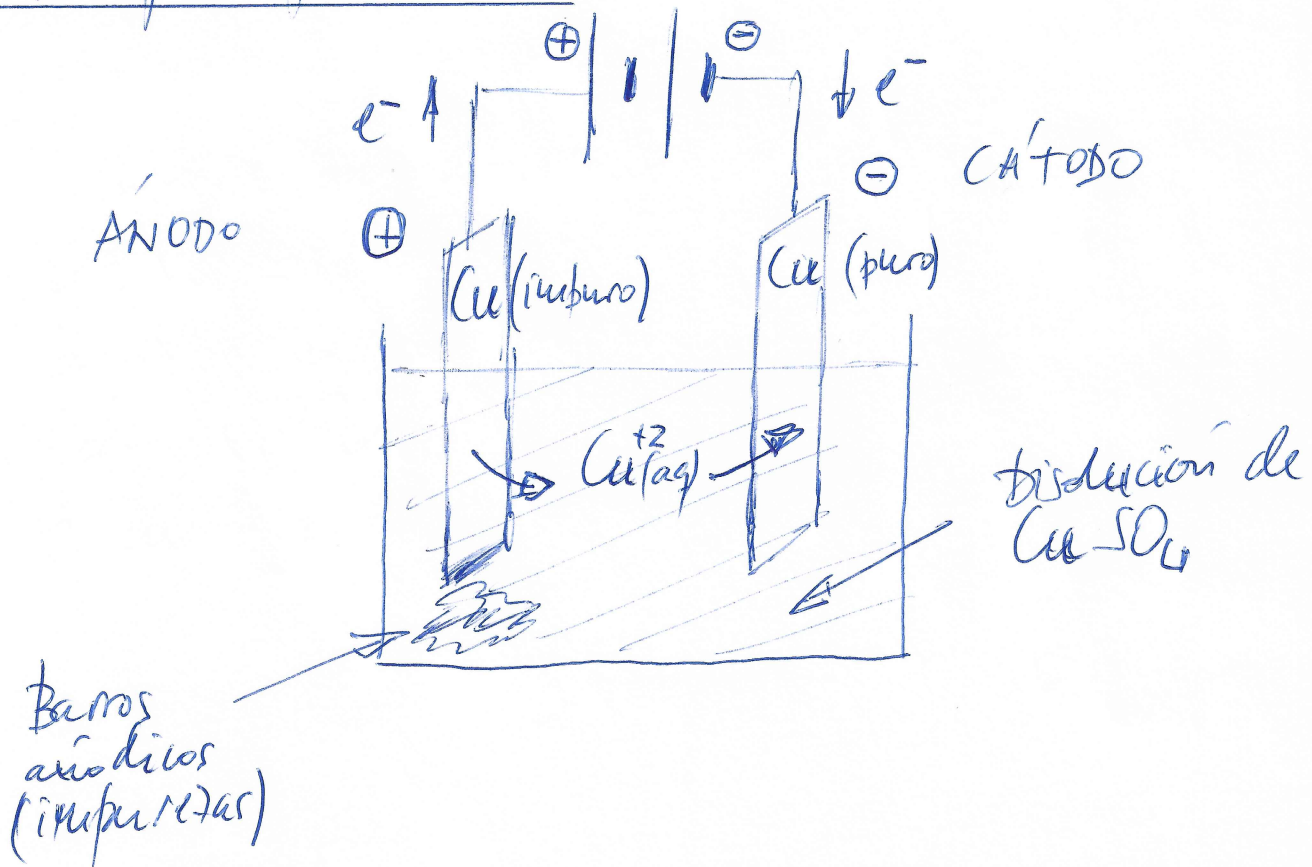 ⊕ ⊖
e⁻ ↑ ↓ e⁻
ÁNODO ⊕ ⊖ CÁTODO
Cu (impuro) Cu (puro)
Cu⁺²(aq)
Disolución de
CuSO₄
Barros
anódicos
(impurezas)